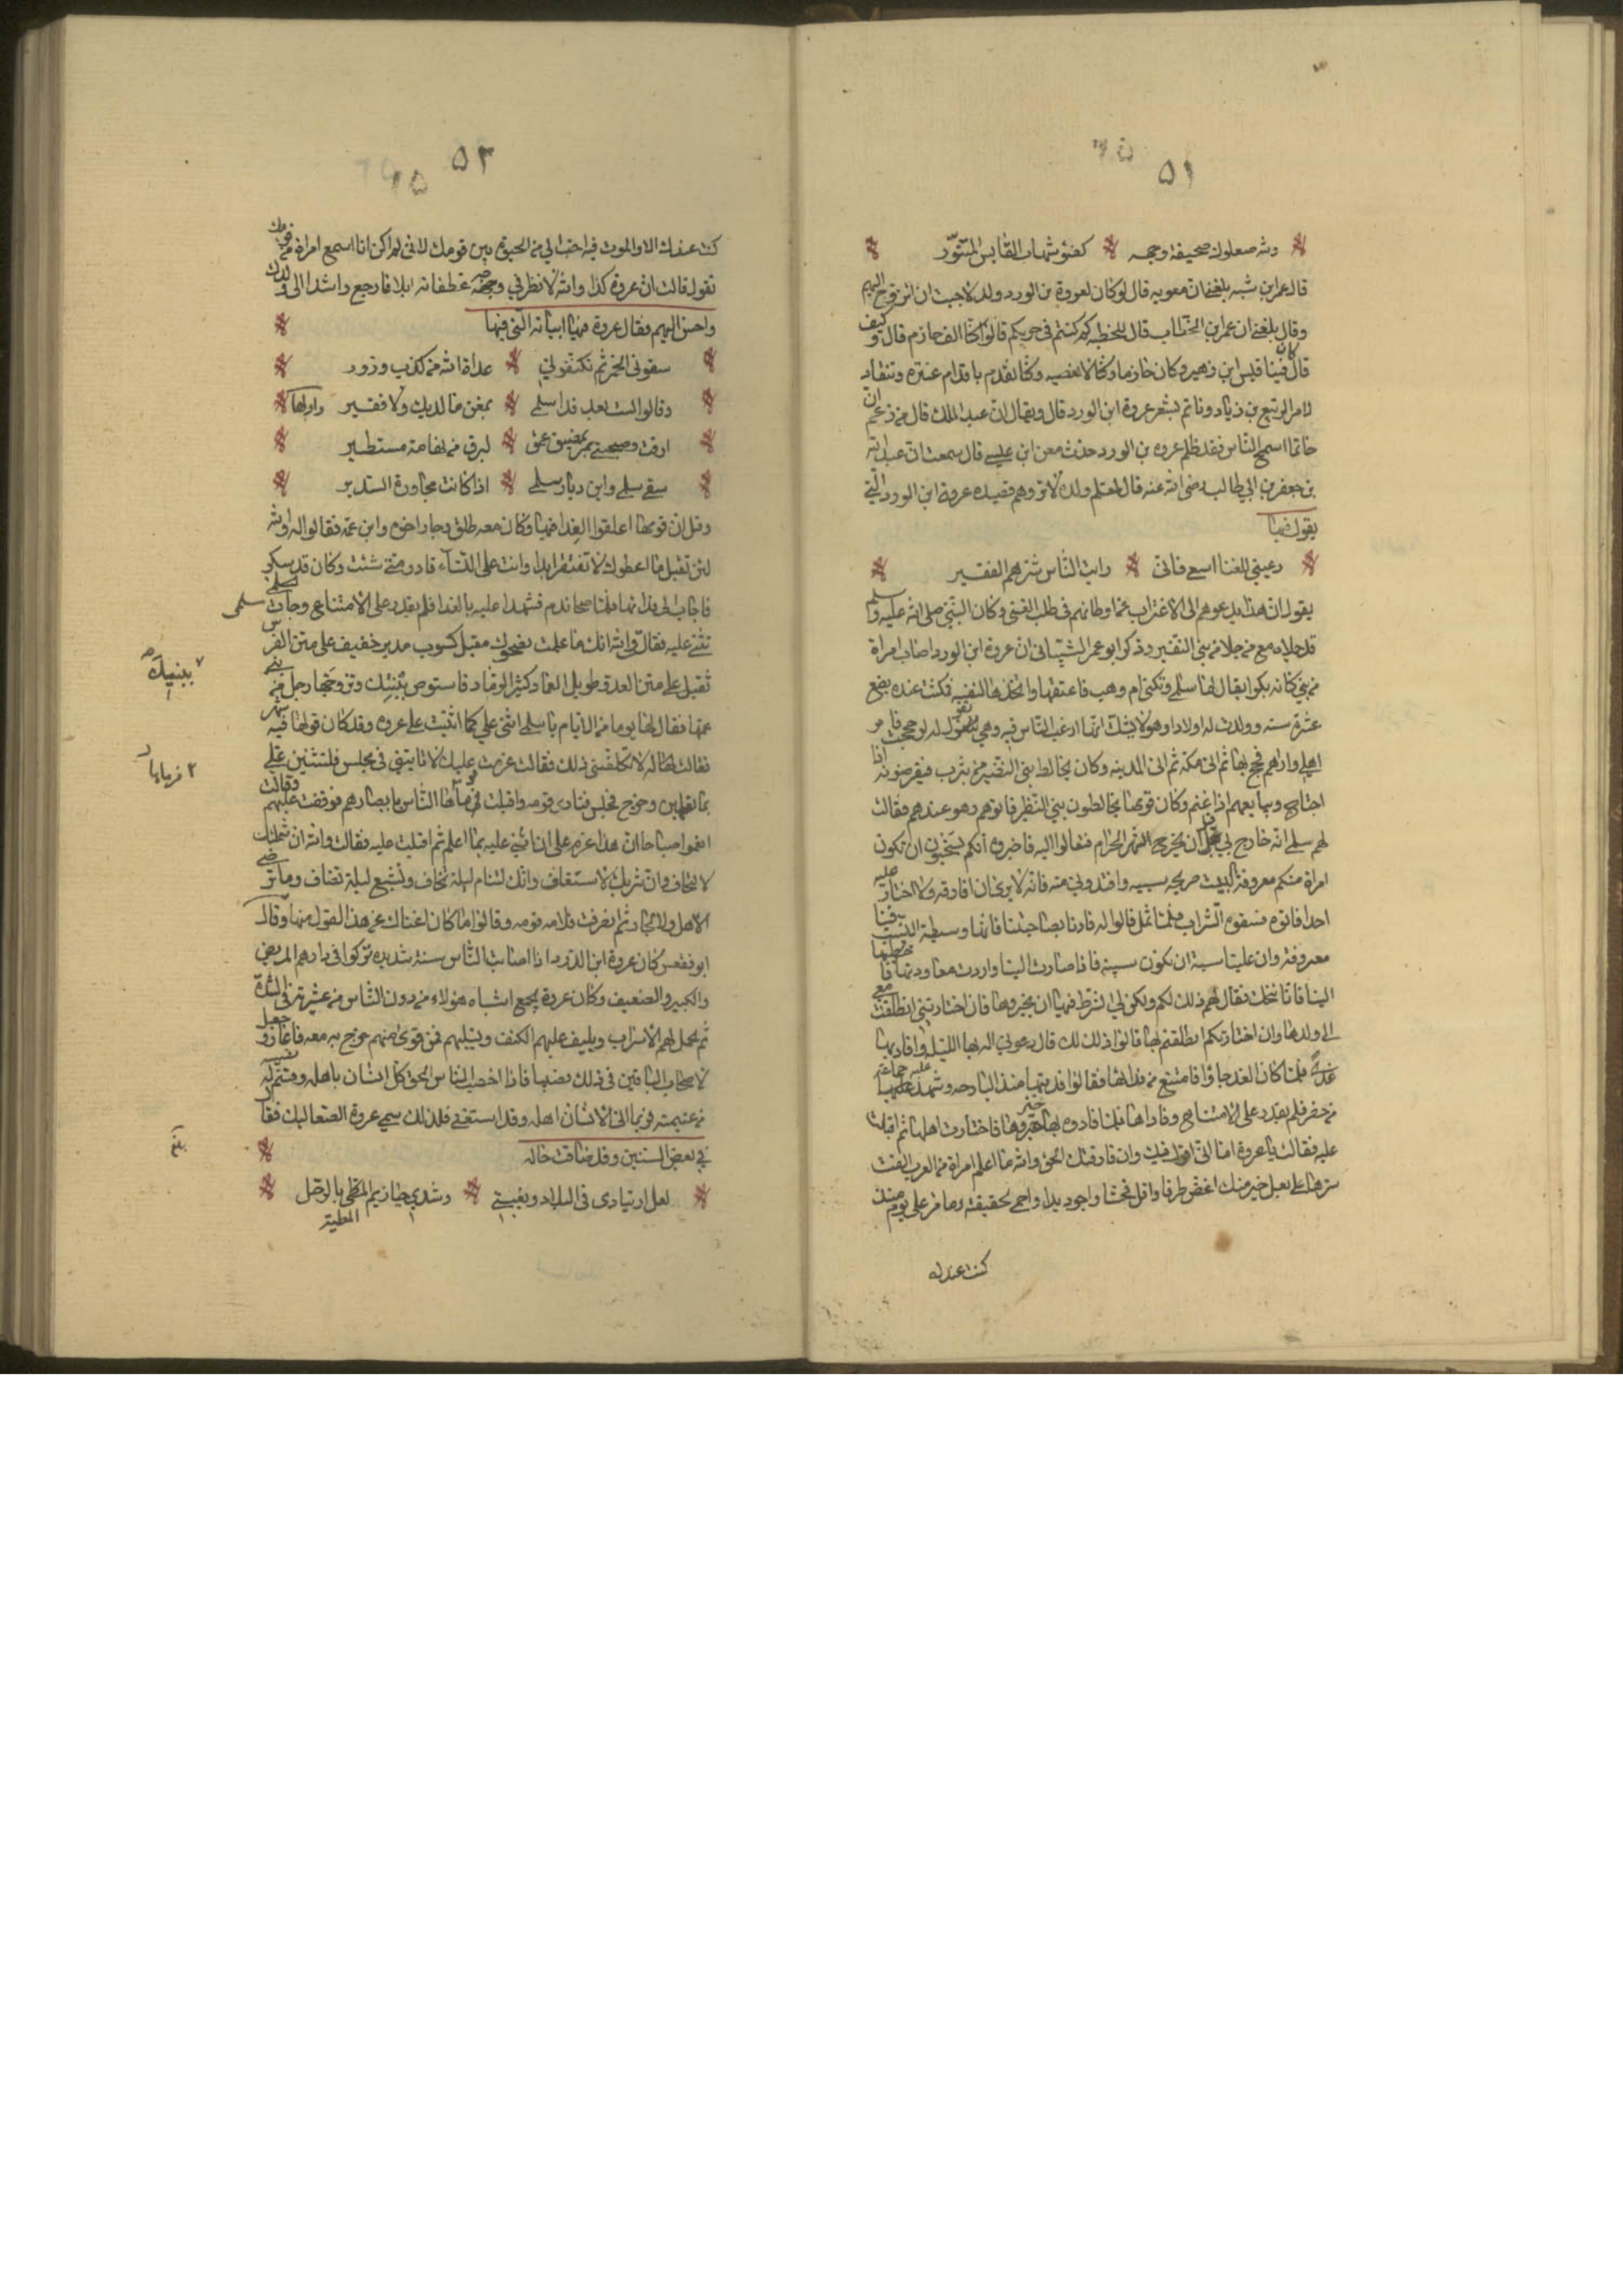 ٥١
ولله صعلوك صحيفة وجهه كضوء شهاب القابس المتنور
قال عمر ابن شبه بلغني ان معويه قال لو كان لعروة بن الورد ولد لاحببت ان اتزوج اليهم
وقال بلغني ان عمر ابن الخطاب قال للحطيه كيف كنتم في حربكم قالوا كنا الف حازم قال وكيف
قال كان فينا قيس ابن زهير وكان حازما وكنا لا نعصيه وكنا نقدم باقدام عنتره وننقاد
لامر الربيع بن زياد وناتم بشعر عروة ابن الورد قال ويقال ان عبد الملك قال من زعم ان
حاتما اسمح الناس فقد ظلم عروه بن الورد حدث معن ابن عيسى قال سمعت ان عبد الله
بن جعفر بن ابي طالب رضى الله عنه قال لمعلم ولده لا تروهم قصيده عروة ابن الورد التي
يقول فيها
دعيني للغنا اسعى فانى رايت الناس شرهم الفقير
يقول ان هذا يدعوهم الى الاغتراب عن اوطانهم فى طلب الغنى وكان النبي صلى الله عليه وسلم
قد جلاه مع من جلا من بني النضير وذكر ابو عمر الشيباني ان عروة ابن الورد اصاب امراة
من بني كنانه بكرا يقال لها سلمى وتكنى ام وهب فاعتقها واتخذها لنفسه فمكثت عنده بضع
عشرة سنه وولدت له اولادا وهو لا يشك انها ارغب الناس فيه وهي تقول له لو حججت فامر
اهلي واراهم فحج بها ثم اتى مكة ثم اتى المدينه وكان يخالط بني النضير من يثرب فيقرضونه اذا
احتاج ويبايعهم اذا غنم وكان قومها يخالطون بني النظير فاتوهم وهو عندهم فقالت
لهم سلمى انه خارج بي قبل ان يخرج الشهر الحرام فتعالوا اليه فاخبروه انكم تستحيون ان تكون
امراة منكم معروفة البيت صريحه سبيه وافتدوني منه فانه لا يرى ان افارقه ولا اختار عليه
احدا فاتوه فسقوه الشراب فلما ثمل قالوا له فادنا بصاحبتنا فانها وسيطة النسب فينا
معروفة وان علينا سبة ان تكون سبية فاذا صارت الينا واردت معاودتها فاخطبها
الينا فاننا ننكحك فقال لهم ذلك لكم ولكن لي الشرط فيها ان تخيروها فان اختارتني انطلقت معي
الى ولدها وان اختارتكم انطلقتم بها قالوا ذلك لك قال دعوني اله بها الليلة وافاديها
غدا فلما كان الغد جاؤا فامتنع من فدائها فقالوا فديتها منذ البارحه وشهد عليه جماعة
من حضر فلم يقدر على الامتناع وفاداها فلما فادوه بها خيروها فاختارت اهلها ثم اقبلت
عليه فقالت يا عروة اما اني اقول فيك وان فارقتك الحق والله ما اعلم امراة من العرب القت
سترها على بعل خير منك اغض طرفا واقل فحشا واجود يدا واحمى لحقيقة وما مر علي يوم منذ
كنت عندك
٥٢
كنت عندك الا والموت فيه احب الي من الحيوة بين قومك لانى لم اكن اشا اسمع امراة من قومك
تقول قالت ان عروة كذا والله لا انظر في وجه غطفانه ابدا فارجع راشدا الى ولدك
واحسن اليهم فقال عروة فيها ابياته التي فيها
سقوني الخمر ثم تكنفوني عداة الله من كذب وزور
وقالوا لست بعد فدا سلمى بمغن ما لديك ولا فقير واولها
ارقت وصحبتي بمضيق عمق لبرق من تهامة مستطير
سقى سلمى واين ديار سلمى اذا كانت مجاورة السدير
وقيل ان قومها اغلقوا الفدا فيها وكان معه طلق وجبار اخوه وابن عمه فقالوا له والله
لئن تقبل ما اعطوك لا تفتقر ابدا وانت على النساء قادر متى شئت وكان قد سكر
فاجاب الى فدائها فلما صحا ندم فشهدوا عليه بالفدا فلم يقدر على الامتناع وجات سلمى
تثني عليه فقالت والله انك ما علمت لضحوك مقبل كسوب مدبر خفيف على متن الفرس
ثقيل على متن العدو طويل العماد كثير الرماد فاستوص ببنيك وتزوجها رجل من بني
عمها فقال لها يوما من الايام يا سلمى اثني علي كما اثنيت على عروه وقد كان قولها فيه شهر
فقالت له لا تكلفني ذلك فقالت عزمت عليك لاتاتينني في مجلس فلتثنين علي
بما تعلمين وخرج فجلس فنادى قومه واقبلت فرماها الناس بابصارهم فوقفت عليهم وقالت
انعموا صباحا ان هذا عزم على ان اثني عليه بما اعلم ثم اقبلت عليه فقالت والله ان شملتك
لالتحاف وان شربك لاستفاف وانك لتنام ليلة تخاف وتشبع ليلة تضاف وما ترضي
الاهل ولا الجار ثم انصرفت فلامه قومه وقالوا ما كان اغناك عن هذا القول منها وقال
ابو فقعس كان عروة ابن الورد اذا اصابت الناس سنة شديده تركوا في دارهم المريض
والكبير والضعيف وكان عروة يجمع اشباه هولاء من دون الناس من عشيرته فى الشدة
ثم يحمل لهم الاسراب ويليف عليهم الكنف ويسليهم فمن قوى منهم خرج به معه فاغار وجعل
لاصحاب الباقين فى ذلك نصيبا فاذا اخصب الناس الحق كل انسان باهله وقسم له نصيبه
من غنيمته فربما اتى الانسان اهله وقد استغنى فلذلك سمي عروة الصعاليك فقال
في بعض السنين وقد ضاقت حاله
لعل ارتيادى فى البلاد وبغيتى وشدي حيازيم المطى بالرحل
المطية
ببنيك
فرماها